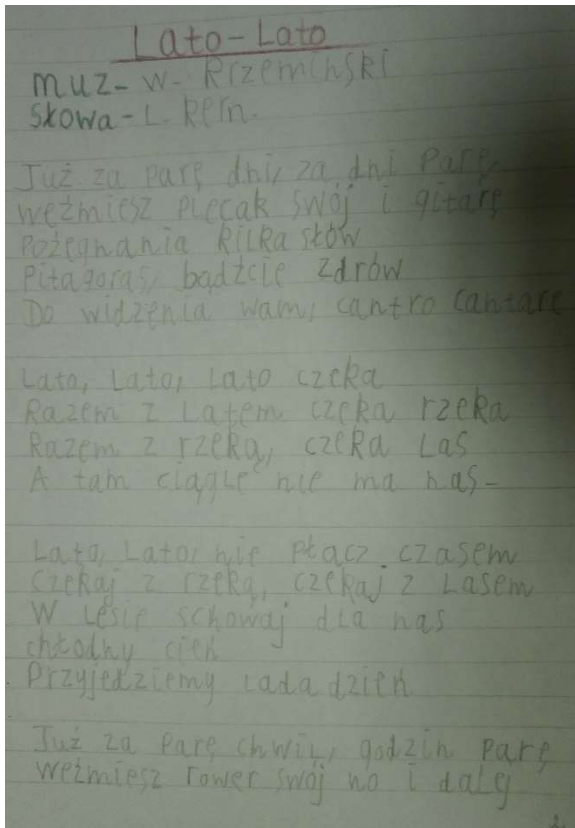 Lato-Lato
muz- w- Krzemiński
słowa- L. Kern.
Już za parę dni, za dni parę,
weźmiesz plecak swój i gitarę
Pożegnania kilka słów
Pitagoras, bądźcie zdrów
Do widzenia wam, cantro cantare
Lato, Lato, Lato czeka
Razem z Latem czeka rzeka
Razem z rzeką, czeka Las
A tam ciągle nie ma nas-
Lato, Lato, nie płacz czasem
Czekaj z rzeką, czekaj z Lasem
W Lesie schowaj dla nas
chłodny cień
Przyjedziemy lada dzień
Już za parę chwil, godzin parę
weźmiesz rower swój no i dalę
2.